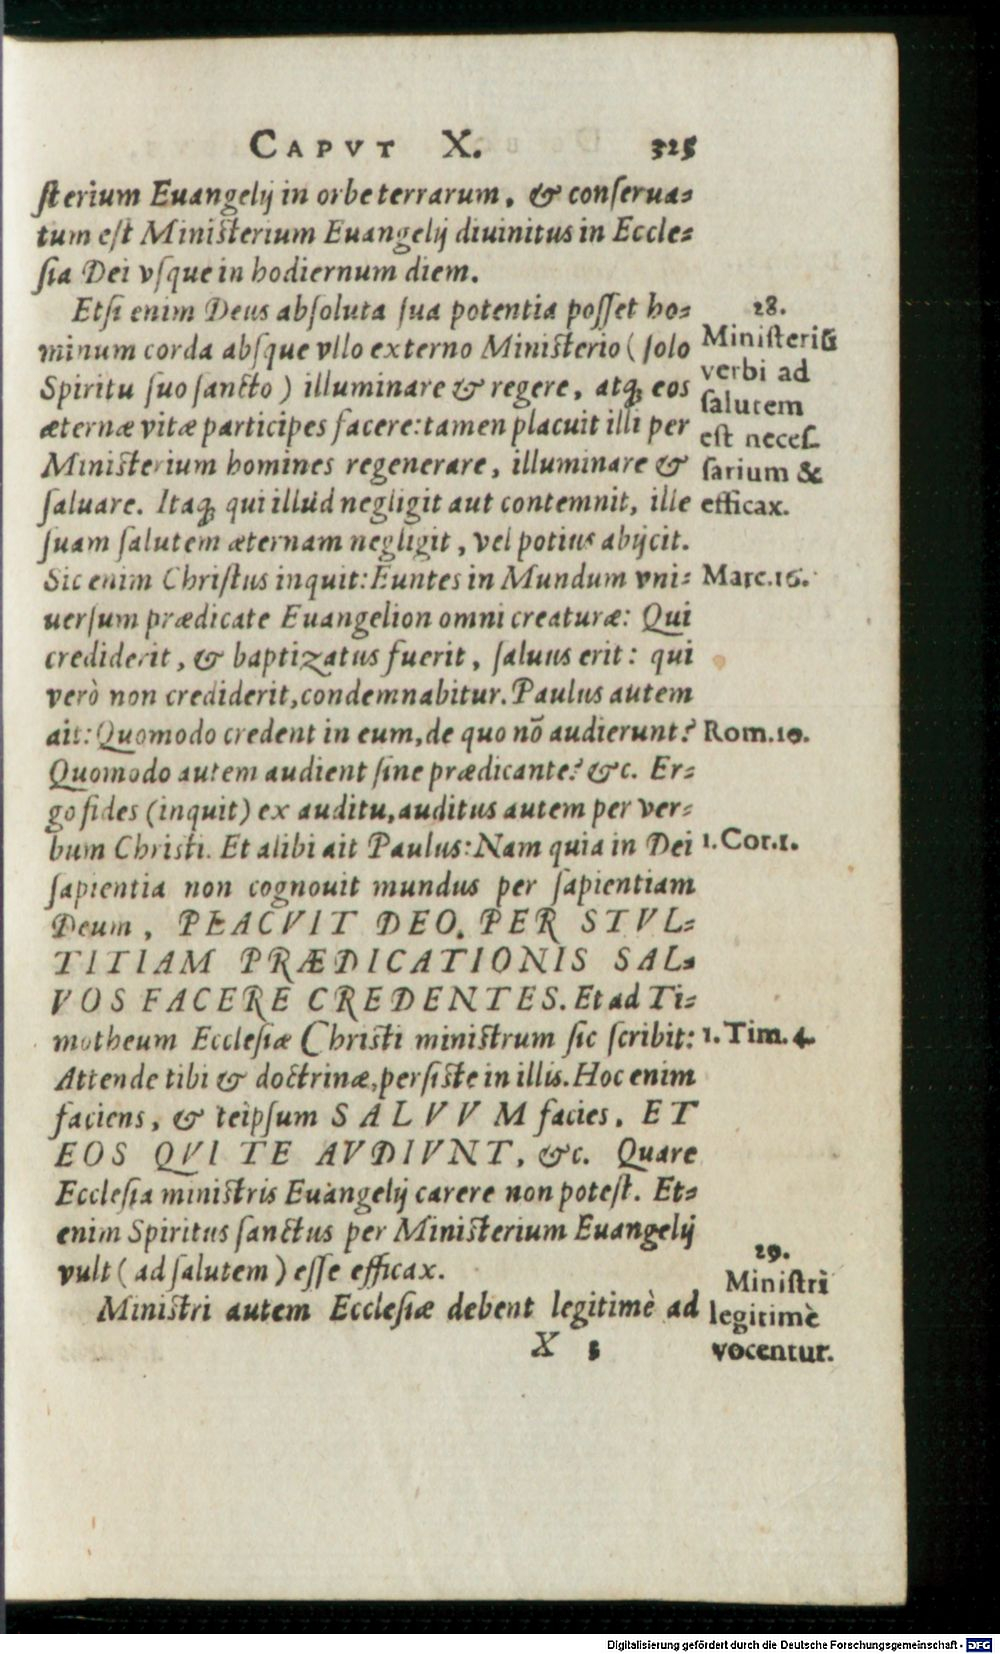 CAPVT X. 325
ſterium Euangelij in orbe terrarum, & conſerua-
tum eſt Miniſterium Euangelij diuinitus in Eccle-
ſia Dei vſque in hodiernum diem.
Etſi enim Deus abſoluta ſua potentia poſſet ho-
minum corda abſque vllo externo Miniſterio (ſolo
Spiritu ſuo ſancto) illuminare & regere, atq; eos
æternæ vitæ participes facere: tamen placuit illi per
Miniſterium homines regenerare, illuminare &
ſaluare. Itaq; qui illud negligit aut contemnit, ille
ſuam ſalutem æternam negligit, vel potius abijcit.
28.
Miniſteriũ
verbi ad
ſalutem
eſt neceſ-
ſarium &
efficax.
Sic enim Chriſtus inquit: Euntes in Mundum vni-
Marc.16.
uerſum prædicate Euangelion omni creaturæ: Qui
crediderit, & baptizatus fuerit, ſaluus erit: qui
verò non crediderit, condemnabitur. Paulus autem
ait: Quomodo credent in eum, de quo nõ audierunt?
Rom.10.
Quomodo autem audient ſine prædicante? &c. Er-
go fides (inquit) ex auditu, auditus autem per ver-
bum Chriſti. Et alibi ait Paulus: Nam quia in Dei
1.Cor.1.
ſapientia non cognouit mundus per ſapientiam
Deum, PLACVIT DEO, PER STVL-
TITIAM PRÆDICATIONIS SAL-
VOS FACERE CREDENTES. Et ad Ti-
motheum Eccleſiæ Chriſti miniſtrum ſic ſcribit:
1.Tim.4.
Attende tibi & doctrinæ, perſiſte in illis. Hoc enim
faciens, & teipſum SALVVM facies, ET
EOS QVI TE AVDIVNT, &c. Quare
Eccleſia miniſtris Euangelij carere non poteſt. Et-
enim Spiritus ſanctus per Miniſterium Euangelij
vult (ad ſalutem) eſſe efficax.
Miniſtri autem Eccleſiæ debent legitimè ad
29.
Miniſtri
legitimè
vocentur.
X 5
Digitalisierung gefördert durch die Deutsche Forschungsgemeinschaft - DFG